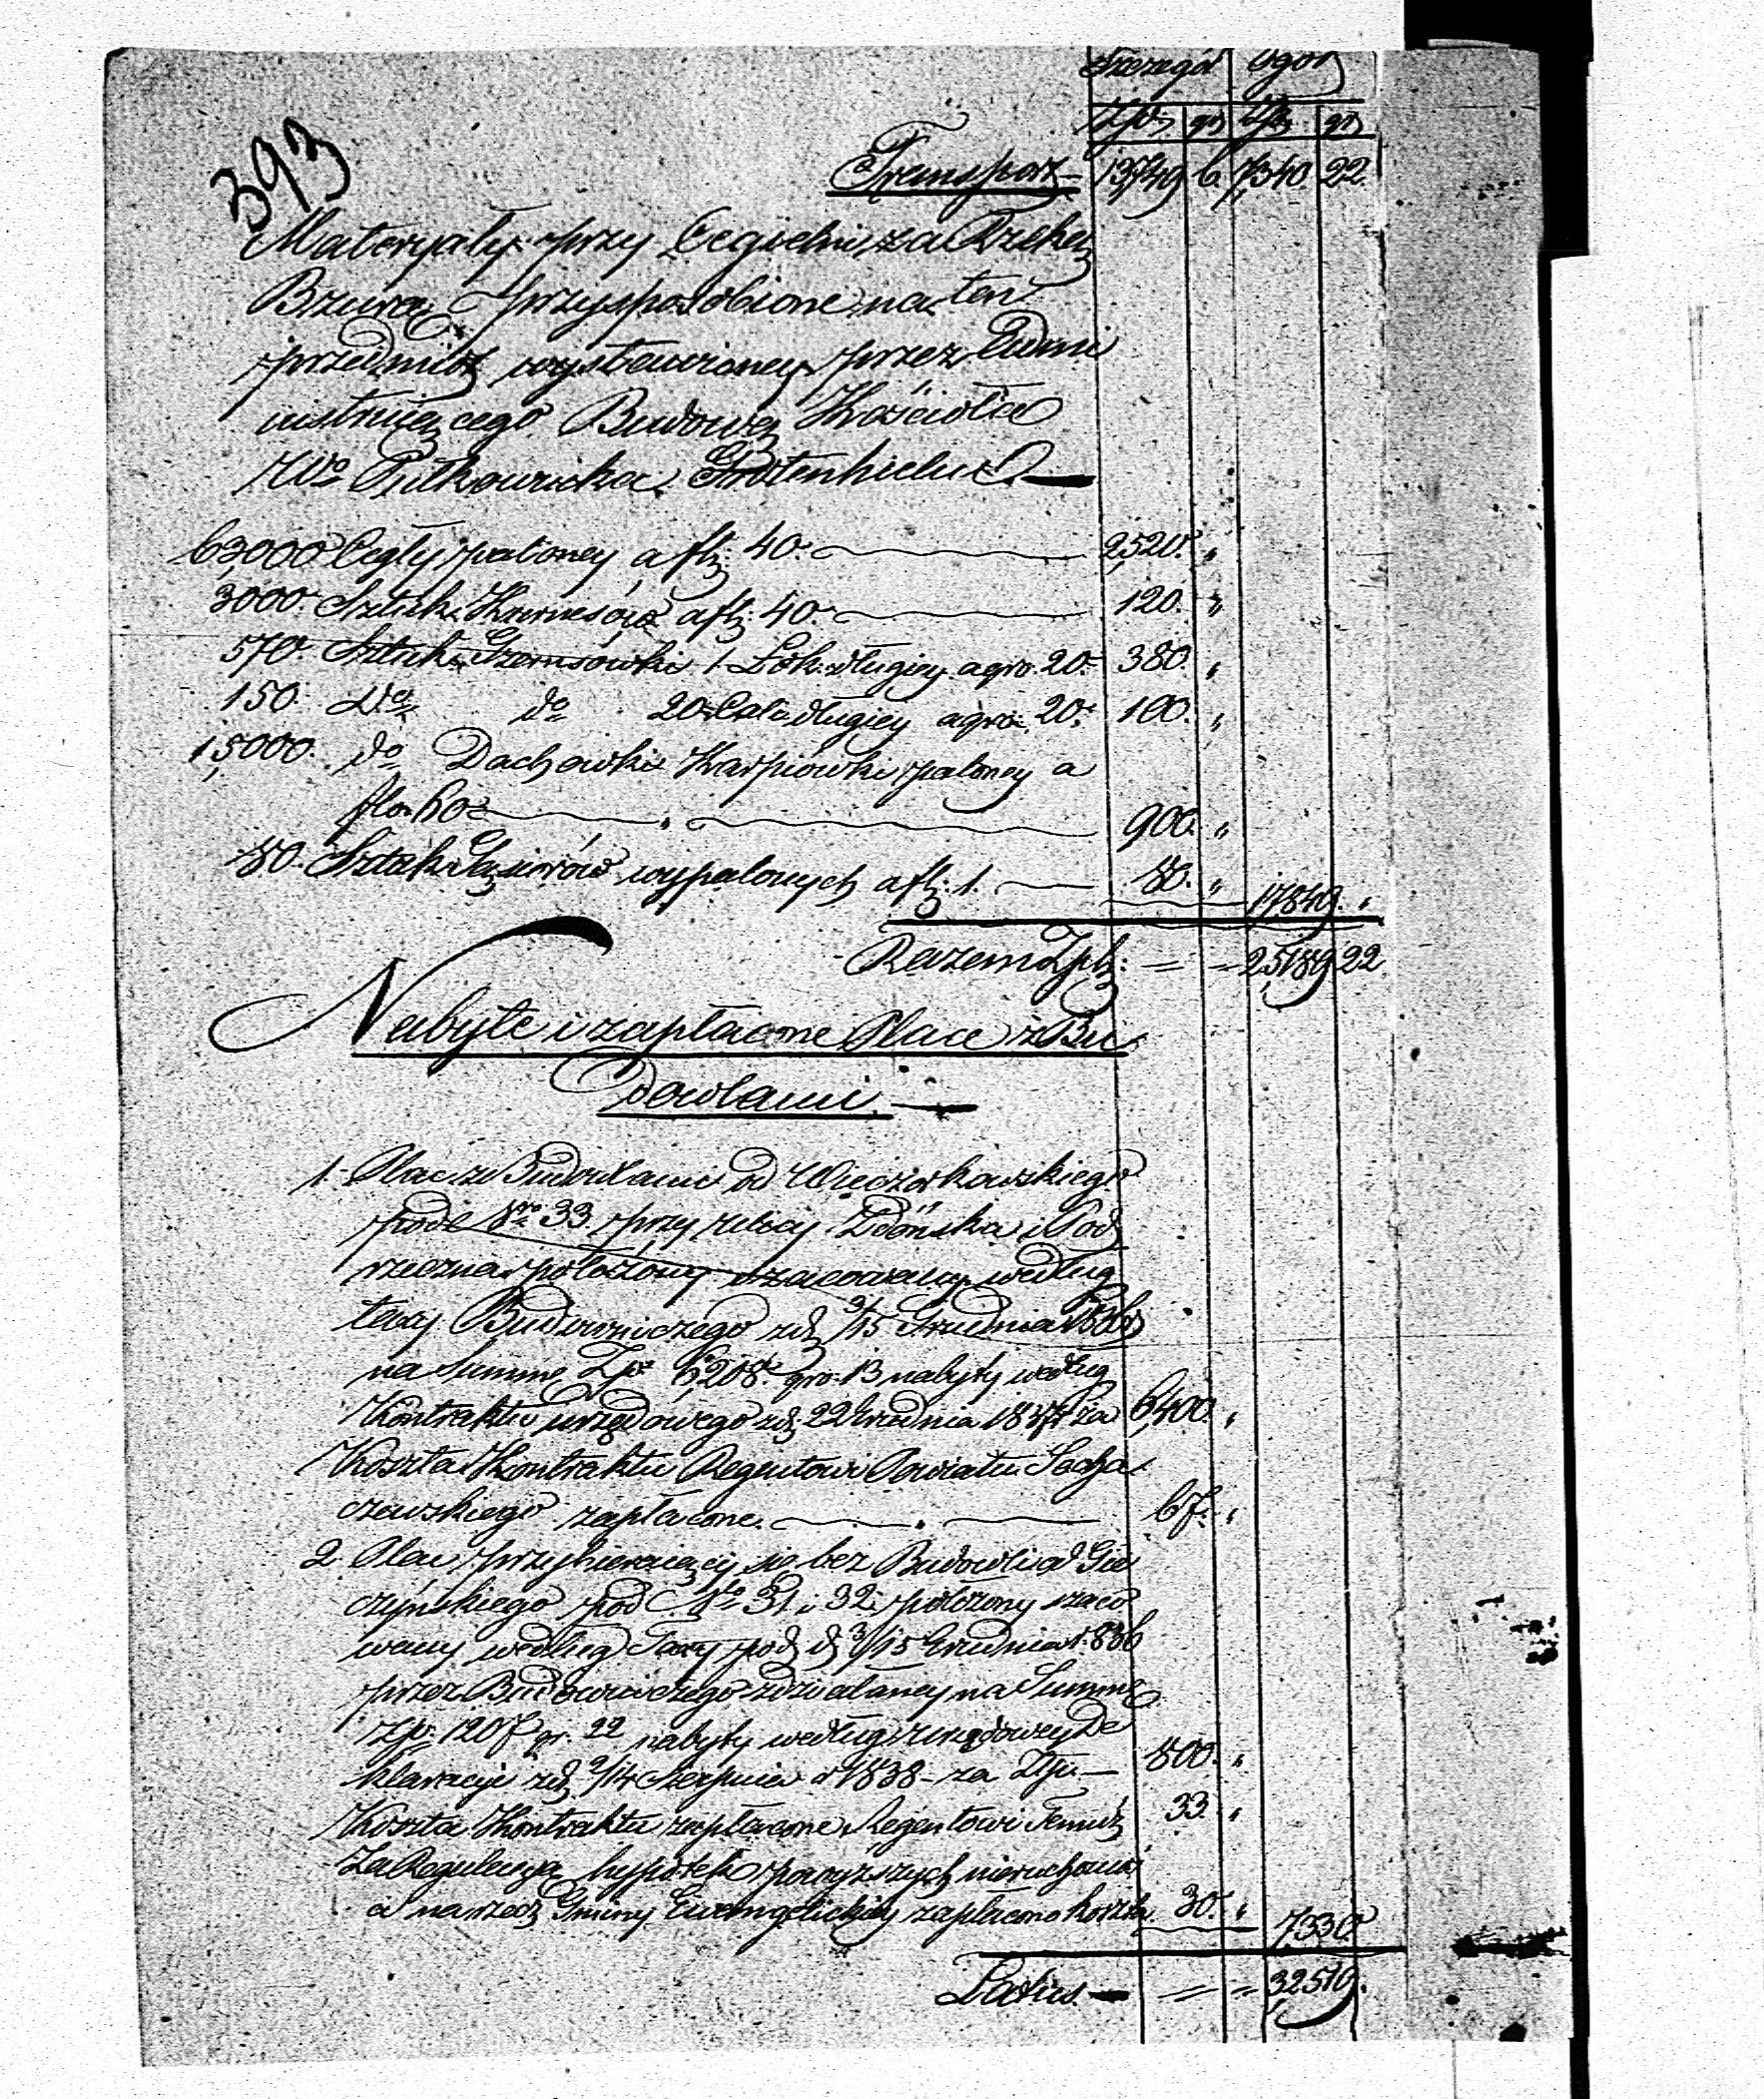 Szczegół Ogół
Złp. gr. Złp. gr.
393
Transport 13749 6 7,340 22
Materyały przy Cegielni za Rzeką
Bzurą przysposobione na ten
przedmiot wystawioney przez Admi
nistruiącego Budową Kościoła
Rutkowska
63,000 Cegły paloney a fl. 40. 2,520. "
3000. Sztuk Karnesów a fl. 40. 120. "
570. Sztuk Gzemsówki 1 Łok. długiey a gro. 20. 380. "
150. do do 20 Cali długiey a gro. 20. 100. "
15,000. do Dachówki Karpiówki paloney a
fl. 60. 900. "
80. Sztuk Gąsiorów wypalonych a fl. 1. 80. " 17849. "
Razem Złp. = = 25,189 22
Nabyte i zapłacone Place z Bu
dowlami.
1. Plac z Budowlami od Wieczorkowskiego
pode Nro 33 przy ulicy Zdońska i Pod
rzeczna położony szacowany według
taxy Budowniczego z d. 3/15 Grudnia 1836
na Summę Złp. 6,208. gro. 13 nabyty według
Kontraktu urzędowego z d. 22 Grudnia 1837 za 6,400. "
Koszta Kontraktu Regentowi Powiatu Socha
czewskiego zapłacone. 67. "
2. Plac przyhieraiący się bez Budowli od Gie
czyńskiego pod Nro 31 i 32 położony szaco
wany według Taxy pod d. 3/15 Grudnia 1836
przez Budowniczego zdziałaney na Summę
Złp. 1207 gr. 22 nabyty według urzędowey De
klaracyi z d. 2/14 Sierpnia 1838 - za Złp. 800. "
Koszta Kontraktu zapłacone Regentowi Temuż 33. "
Za Regulacyą hypotek powyższych nieruchomoś
ci na rzecz Gminy Ewangelickiey zapłacono koszta 30. " 7330.
Latus = = 32519.